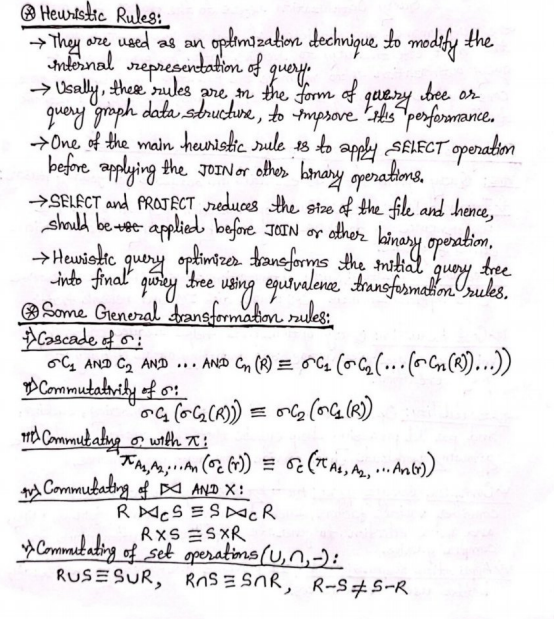 ⊛ Heuristic Rules:
→ They are used as an optimization technique to modify the
internal representation of query.
→ Usally, these rules are in the form of query tree or
query graph data structure, to improve its performance.
→ One of the main heuristic rule is to apply SELECT operation
before applying the JOIN or other binary operations.
→ SELECT and PROJECT reduces the size of the file and hence,
should be applied before JOIN or other binary operation.
→ Heuristic query optimizer transforms the initial query tree
into final qurey tree using equivalence transformation rules.
⊛ Some General transformation rules:
i) Cascade of σ:
σC₁ AND C₂ AND ... AND Cn (R) ≡ σC₁ (σC₂ (... (σCn (R))...))
ii) Commutativity of σ:
σC₁ (σC₂(R)) ≡ σC₂ (σC₁(R))
iii) Commutating σ with π:
πA₁,A₂,...An (σc (r)) ≡ σc (πA₁, A₂, ... An(r))
iv) Commutating of ⋈ AND X:
R ⋈c S ≡ S ⋈c R
R X S ≡ S X R
v) Commutating of set operations (∪, ∩, -):
R∪S ≡ S∪R, R∩S ≡ S∩R, R-S ≠ S-R